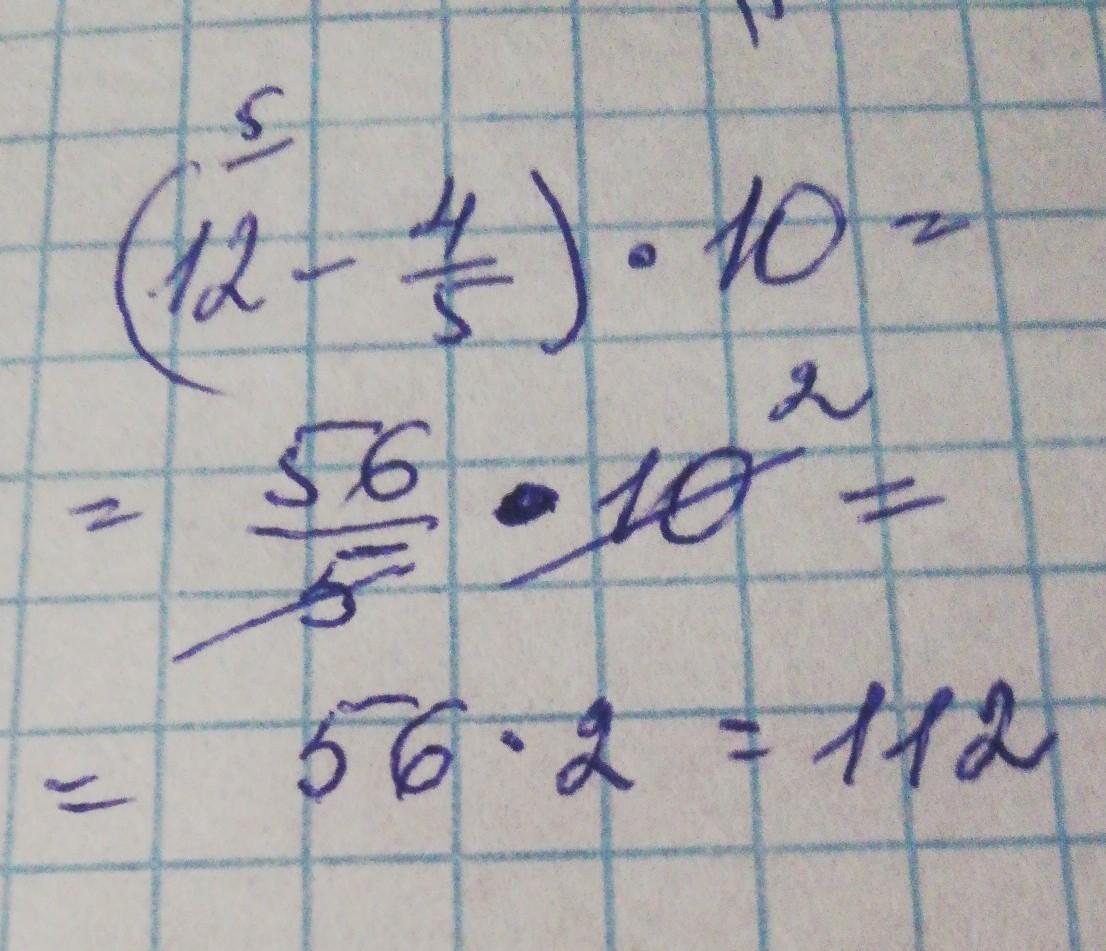 5
(12 - 4/5) · 10 =
= 56/5 · 10 2 =
= 56 · 2 = 112